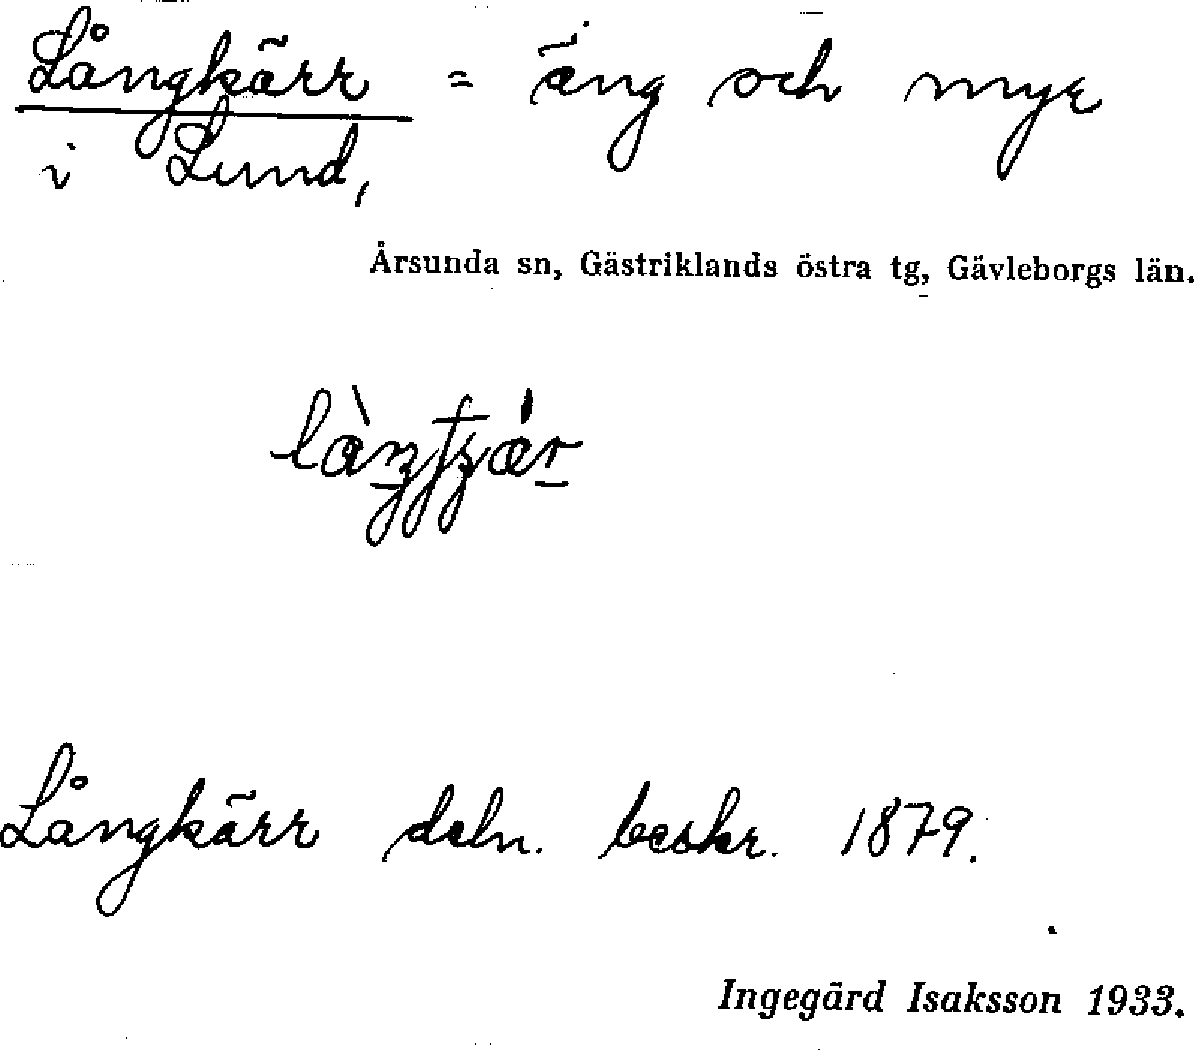 Långkärr = äng och myr
i Lund,
Årsunda sn, Gästriklands östra tg, Gävleborgs län.
Långkärr deln. beskr. 1879.
Ingegärd Isaksson 1933.